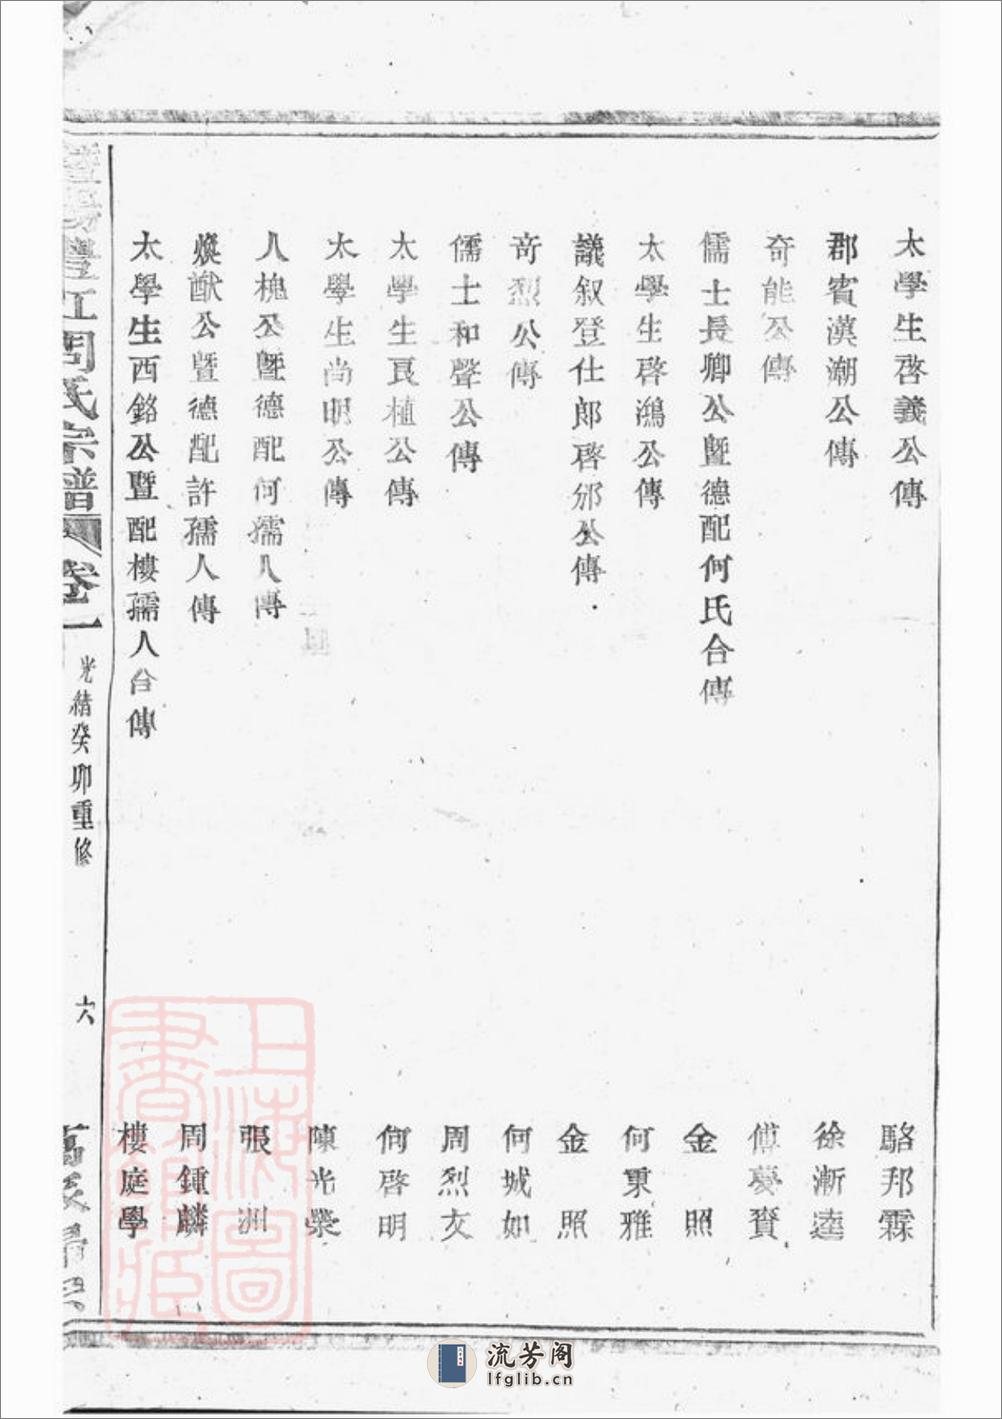 太學生啓義公傳 駱邦霖
郡賓漢潮公傳 徐漸逵
奇能公傳 傅夢賚
儒士長卿公暨德配何氏合傳 金照
太學生啓鴻公傳 何秉雅
議叙登仕郎啓邠公傳 金照
奇烈公傳 何城如
儒士和聲公傳 周烈文
太學生艮植公傳 何啓明
太學生尚明公傳 陳光
人槐公暨德配何孺人傳 張洲
煥猷公暨德配許孺人傳 周鍾麟
太學生西銘公暨配樓孺人合傳 樓庭學
豐江周氏宗譜 卷一 光緒癸卯重修 六
上海圖書館藏
流芳阁
lfglib.cn